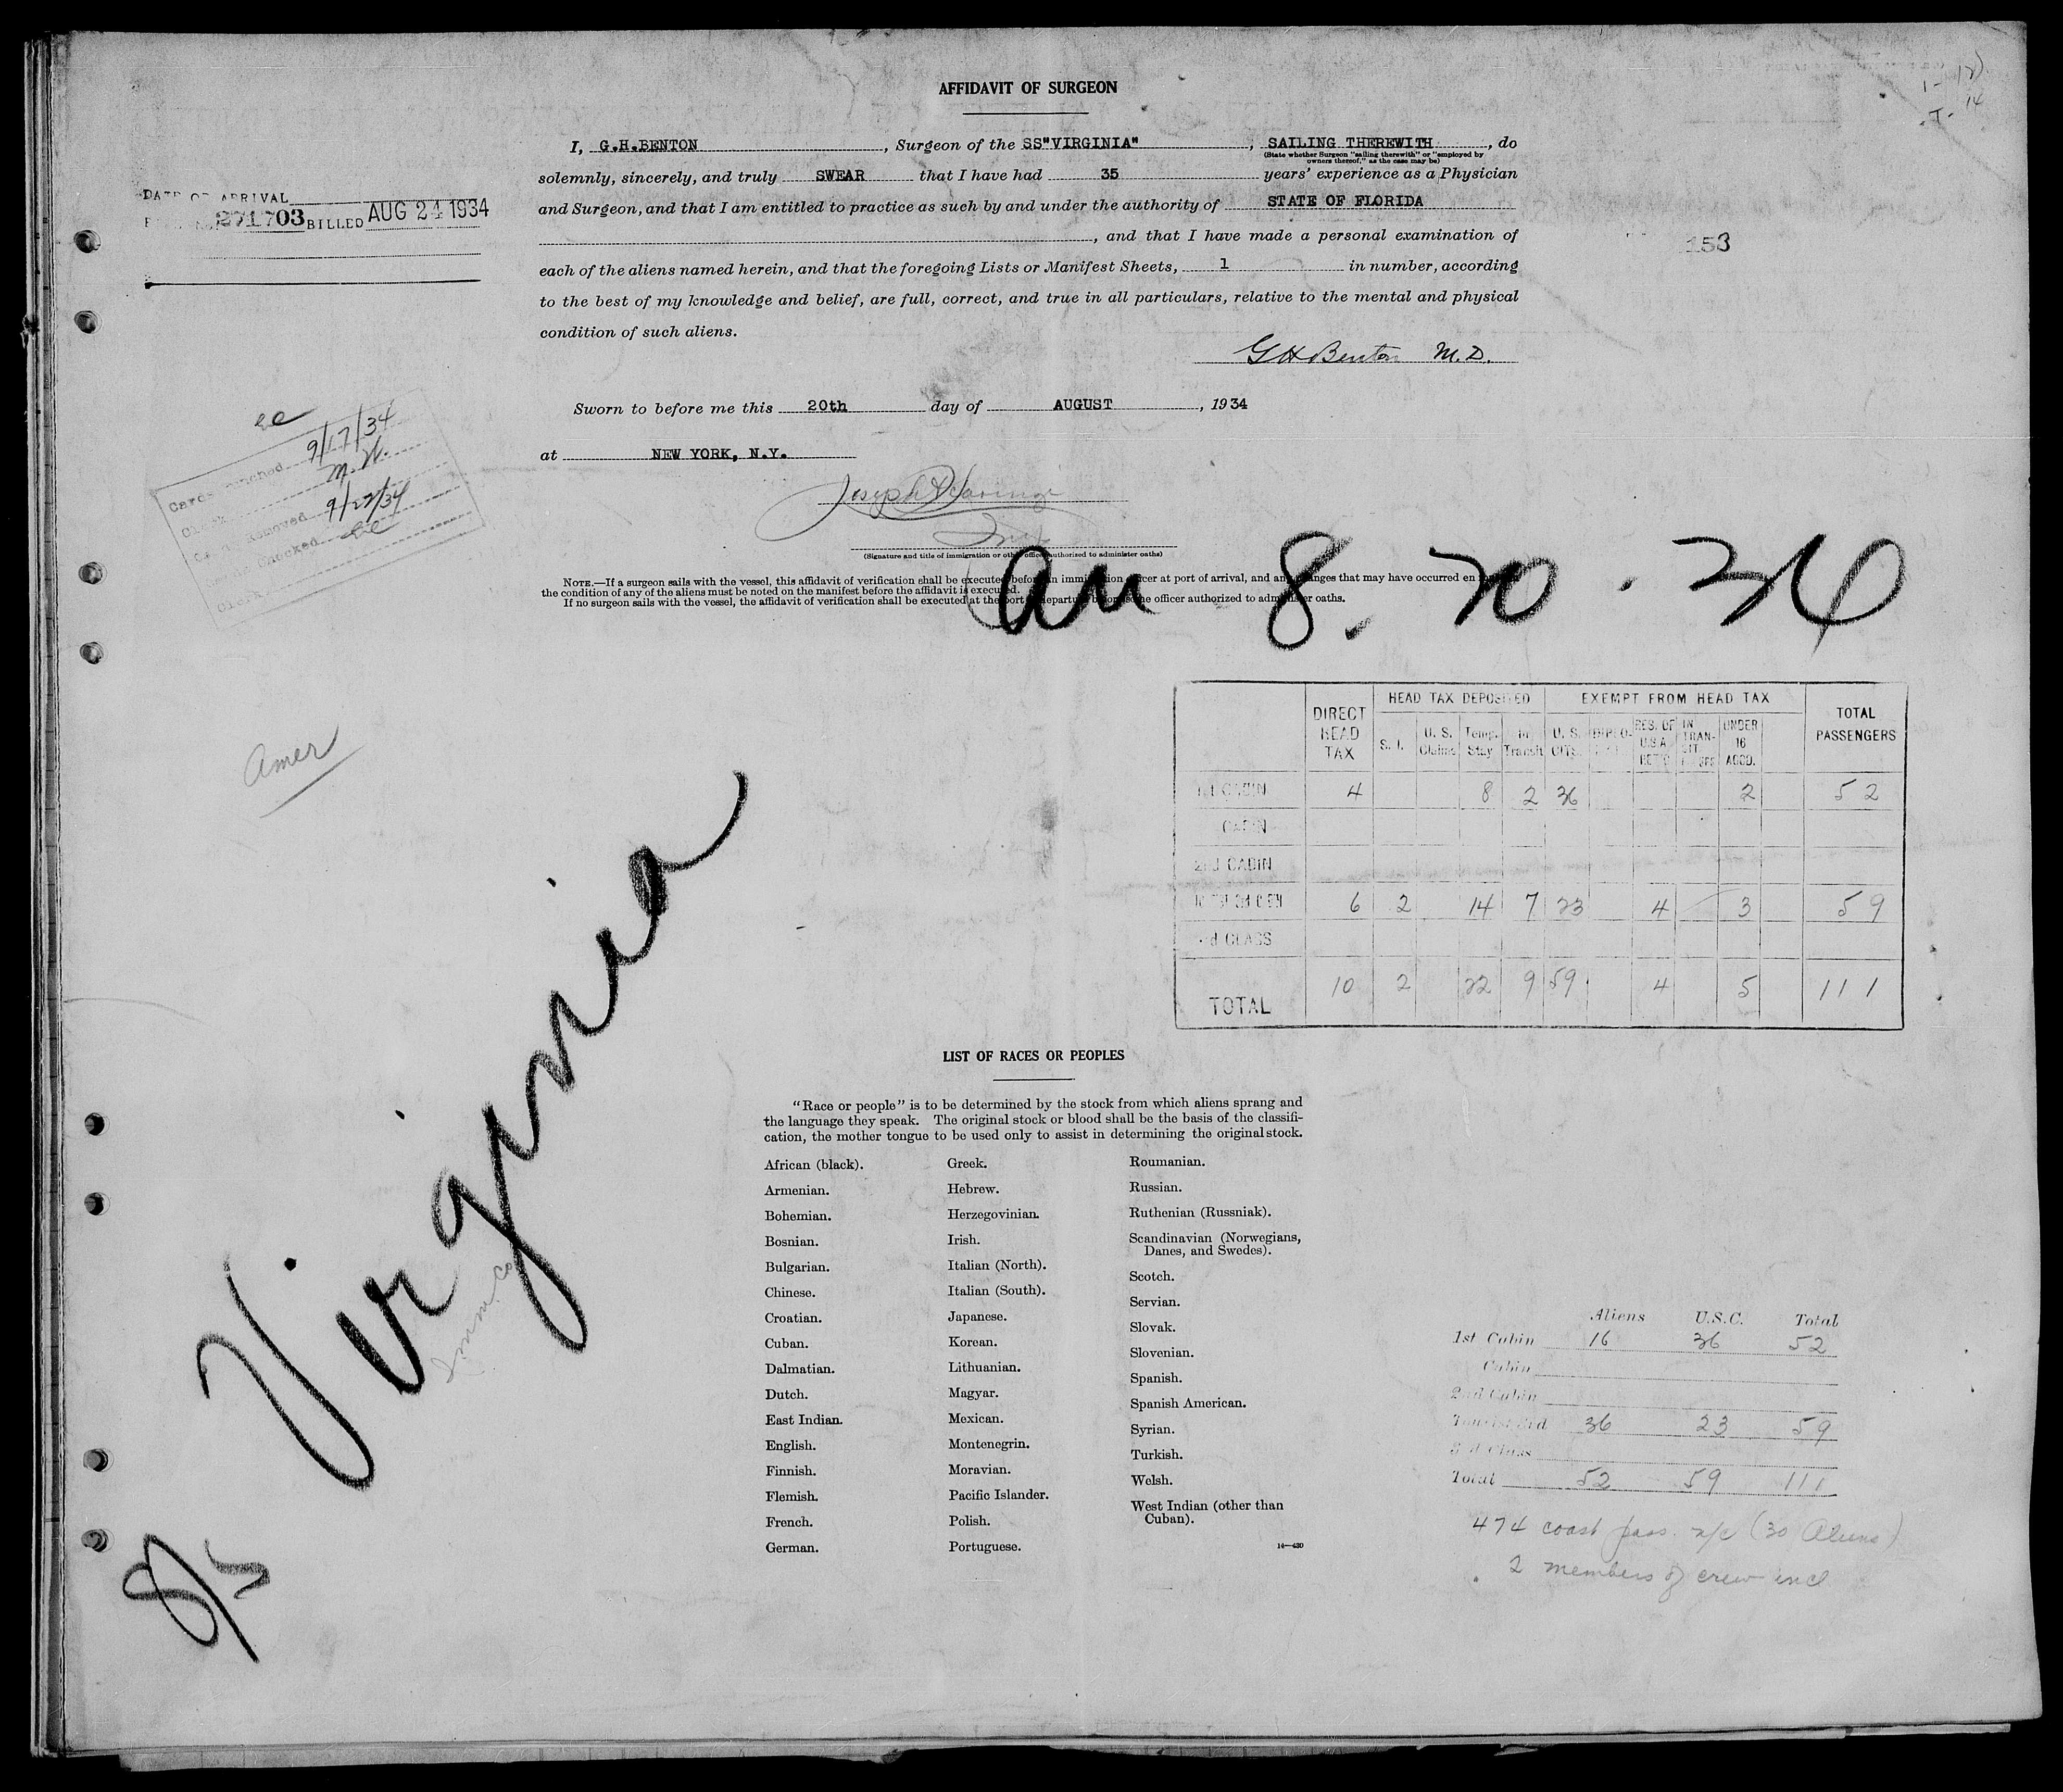 AFFIDAVIT OF SURGEON
I, G.H.BENTON, Surgeon of the SS"VIRGINIA", SAILING THEREWITH, do
(State whether Surgeon "sailing therewith" or "employed by
owners thereof," as the case may be)
solemnly, sincerely, and truly SWEAR that I have had 35 years' experience as a Physician
and Surgeon, and that I am entitled to practice as such by and under the authority of STATE OF FLORIDA
, and that I have made a personal examination of
each of the aliens named herein, and that the foregoing Lists or Manifest Sheets, 1 in number, according
to the best of my knowledge and belief, are full, correct, and true in all particulars, relative to the mental and physical
condition of such aliens.
G H Benton M.D.
Sworn to before me this 20th day of AUGUST, 1934
at NEW YORK, N.Y.
(Signature and title of immigration or other officer authorized to administer oaths)
NOTE.—If a surgeon sails with the vessel, this affidavit of verification shall be executed before an immigration officer at port of arrival, and any changes that may have occurred en
the condition of any of the aliens must be noted on the manifest before the affidavit is executed.
If no surgeon sails with the vessel, the affidavit of verification shall be executed at the port of departure before some officer authorized to administer oaths.
DATE OF ARRIVAL
271703 BILLED AUG 24 1934
153
Cards punched 9/17/34
Clerk M.W.
Cards Removed 9/22/34
Checked
Clerk
8. 20. 34
Amer
Virginia
8/5
HEAD TAX DEPOSITED EXEMPT FROM HEAD TAX
DIRECT HEAD TAX S. I. U. S. Claims Temp. Stay In Transit U. S. CITS. RES. OF U.S.A. RET'G IN TRANSIT UNDER 16 ACCD. TOTAL PASSENGERS
1st CABIN 4 8 2 36 2 52
CABIN
2nd CABIN
6 2 14 7 23 4 3 59
3rd CLASS
TOTAL 10 2 22 9 59 4 5 111
LIST OF RACES OR PEOPLES
"Race or people" is to be determined by the stock from which aliens sprang and
the language they speak. The original stock or blood shall be the basis of the classifi-
cation, the mother tongue to be used only to assist in determining the original stock.
African (black).
Armenian.
Bohemian.
Bosnian.
Bulgarian.
Chinese.
Croatian.
Cuban.
Dalmatian.
Dutch.
East Indian.
English.
Finnish.
Flemish.
French.
German.
Greek.
Hebrew.
Herzegovinian.
Irish.
Italian (North).
Italian (South).
Japanese.
Korean.
Lithuanian.
Magyar.
Mexican.
Montenegrin.
Moravian.
Pacific Islander.
Polish.
Portuguese.
Roumanian.
Russian.
Ruthenian (Russniak).
Scandinavian (Norwegians,
Danes, and Swedes).
Scotch.
Servian.
Slovak.
Slovenian.
Spanish.
Spanish American.
Syrian.
Turkish.
Welsh.
West Indian (other than
Cuban).
14—430
Aliens U.S.C. Total
1st Cabin 16 36 52
Cabin
2nd Cabin
Tourist 3rd 36 23 59
3rd Class
Total 52 59 111
474 coast pass. (30 Aliens)
2 members of crew incl